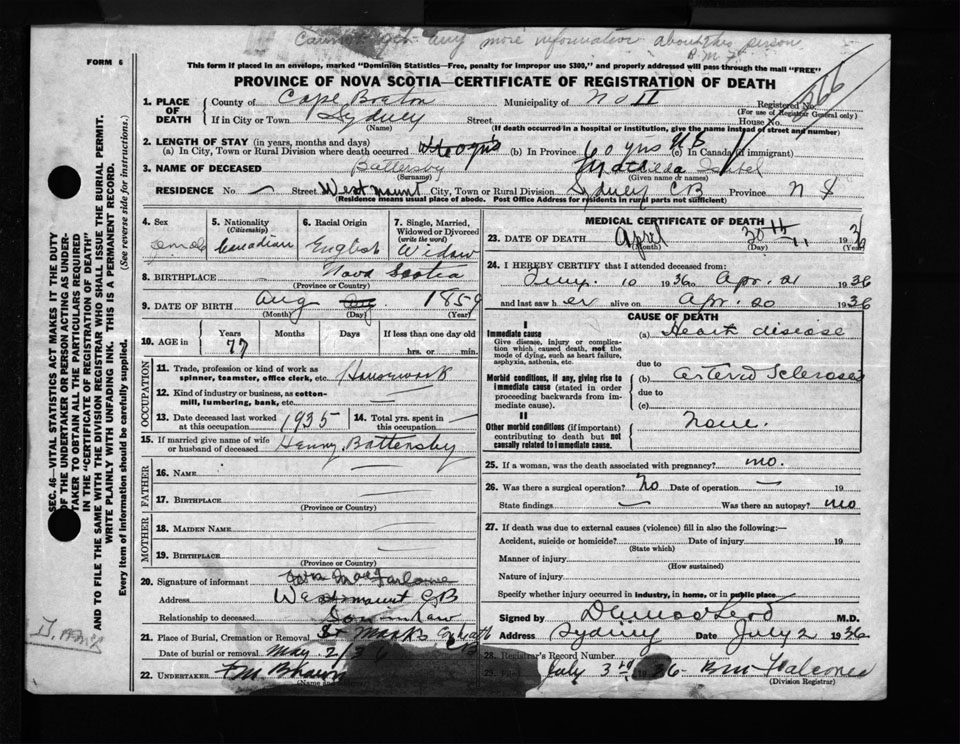 Cannot get any more information about this person
B M F
FORM 6
This form if placed in an envelope, marked "Dominion Statistics—Free, penalty for improper use $300," and properly addressed will pass through the mail "FREE"
PROVINCE OF NOVA SCOTIA—CERTIFICATE OF REGISTRATION OF DEATH
1. PLACE OF DEATH
County of Cape Breton Municipality of No II Registered No.
(For use of Registrar General only)
If in City or Town Sydney Street House No.
(Name) (If death occurred in a hospital or institution, give the name instead of street and number)
2. LENGTH OF STAY (in years, months and days)
(a) In City, Town or Rural Division where death occurred (b) In Province 60 yrs (c) In Canada (if immigrant)
3. NAME OF DECEASED Battersby Mathilda Isabel
(Surname) (Given name or names)
RESIDENCE No. — Street Westmount City, Town or Rural Division Sydney CB Province N S
(Residence means usual place of abode. Post Office Address for residents in rural parts not sufficient)
4. Sex female
5. Nationality (Citizenship) Canadian
6. Racial Origin English
7. Single, Married, Widowed or Divorced (write the word) Widow
8. BIRTHPLACE Nova Scotia
(Province or Country)
9. DATE OF BIRTH Aug 1859
(Month) (Day) (Year)
10. AGE in Years 77 Months Days If less than one day old
hrs. or min.
OCCUPATION
11. Trade, profession or kind of work as spinner, teamster, office clerk, etc. Housework
12. Kind of industry or business, as cotton-mill, lumbering, bank, etc. —
13. Date deceased last worked at this occupation 1935 14. Total yrs. spent in this occupation —
15. If married give name of wife or husband of deceased Henry Battersby
FATHER
16. NAME —
17. BIRTHPLACE —
(Province or Country)
MOTHER
18. MAIDEN NAME —
19. BIRTHPLACE —
(Province or Country)
20. Signature of informant MacFarlane
Address Westmount CB
Relationship to deceased Son in law
21. Place of Burial, Cremation or Removal St Marks Coxheath CB
Date of burial or removal May 2/36
22. UNDERTAKER
(Name and
MEDICAL CERTIFICATE OF DEATH
23. DATE OF DEATH April 30 th 1936
(Month) (Day) (Year)
24. I HEREBY CERTIFY that I attended deceased from:
10 1936 to Apr. 21 1936
and last saw her alive on Apr. 20 1936
CAUSE OF DEATH
I
Immediate cause (a) Heart disease
Give disease, injury or complication which caused death, not the mode of dying, such as heart failure, asphyxia, asthenia, etc.
due to
Morbid conditions, if any, giving rise to immediate cause (stated in order proceeding backwards from immediate cause). (b) Arterio Sclerosis
due to
(c)
II
Other morbid conditions (if important) contributing to death but not causally related to immediate cause. None.
25. If a woman, was the death associated with pregnancy? no.
26. Was there a surgical operation? no Date of operation — 19
State findings — Was there an autopsy? no
27. If death was due to external causes (violence) fill in also the following:—
Accident, suicide or homicide? Date of injury 19
(State which)
Manner of injury
(How sustained)
Nature of injury
Specify whether injury occurred in industry, in home, or in public place
Signed by M.D.
Address Sydney Date July 2 1936
28. Registrar's Record Number
July 3rd 1936
(Division Registrar)
SEC. 46—VITAL STATISTICS ACT MAKES IT THE DUTY
OF THE UNDERTAKER OR PERSON ACTING AS UNDER-
TAKER TO OBTAIN ALL THE PARTICULARS REQUIRED
IN THE "CERTIFICATE OF REGISTRATION OF DEATH"
AND TO FILE THE SAME WITH THE DIVISION REGISTRAR WHO SHALL ISSUE THE BURIAL PERMIT.
WRITE PLAINLY WITH UNFADING INK. THIS IS A PERMANENT RECORD.
Every item of information should be carefully supplied. (See reverse side for instructions.)